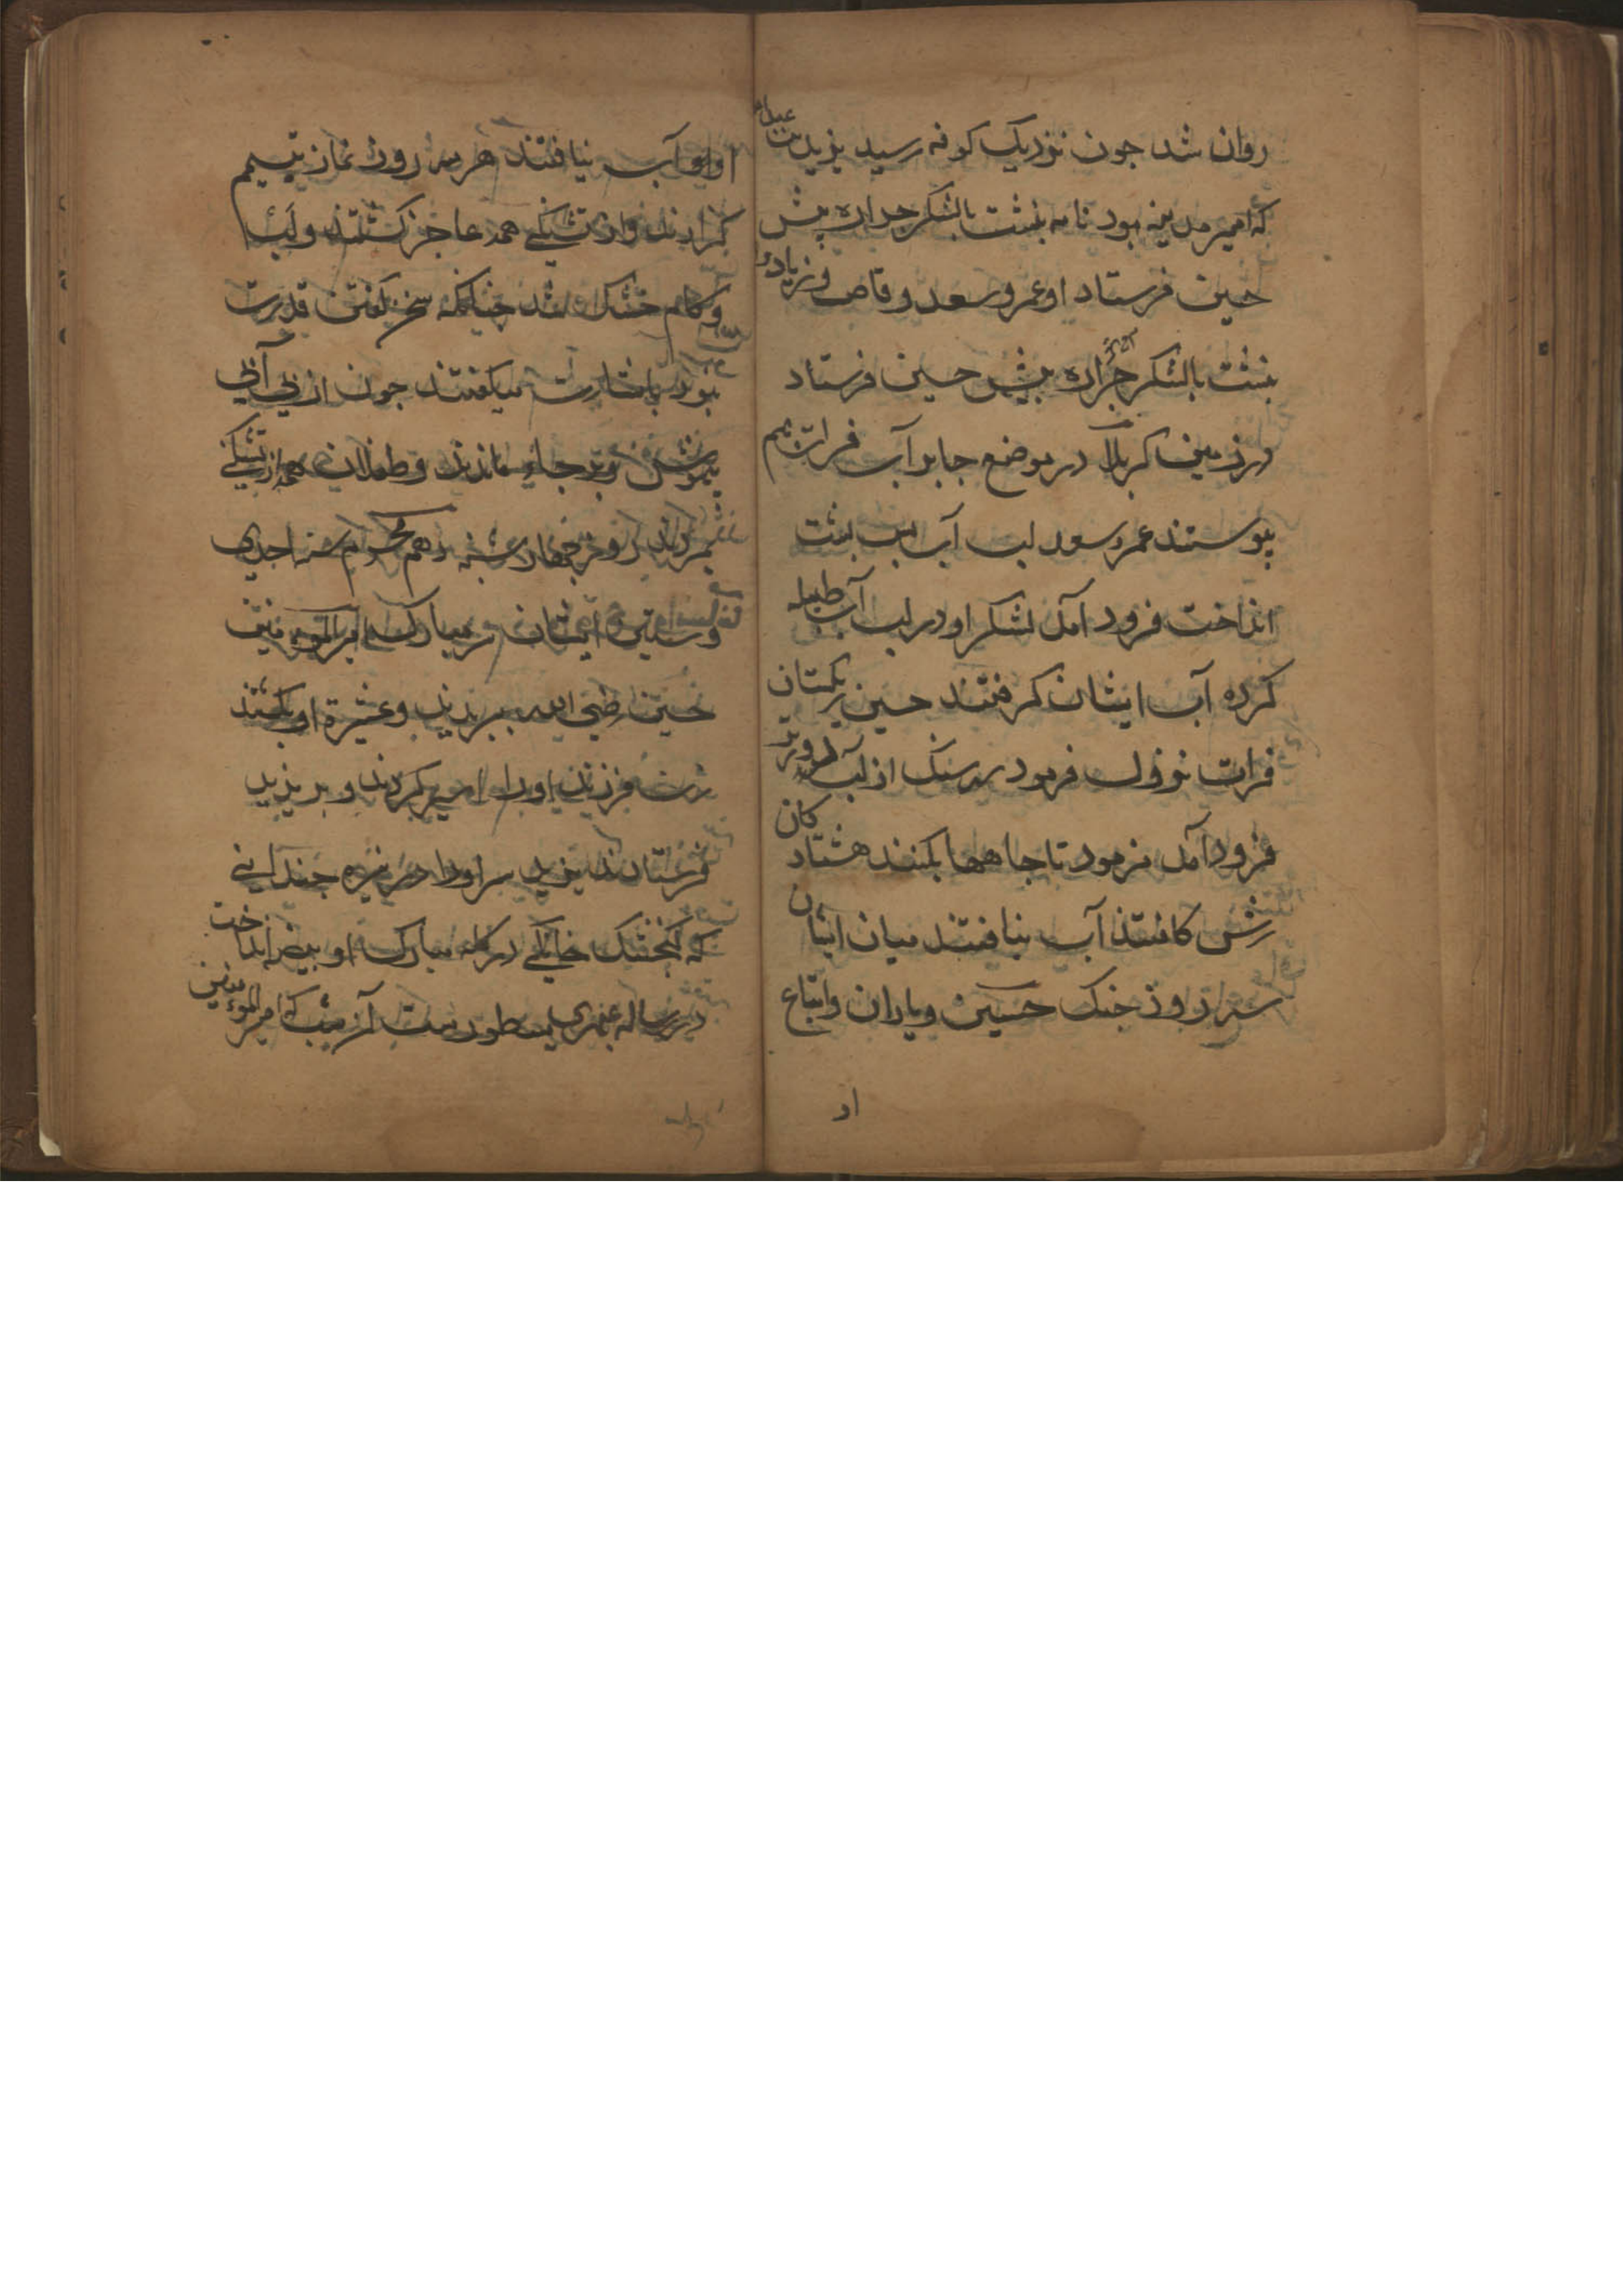 روان شد جون نزدیک کوفه رسید یزید بن
که امیر مدینه بود نامه بنشت بالشکر جراره پیش
حسین فرستاد او عمرو سعد وقاص و زیاد
بنشت بالشکر جراره پیش حسین فرستاد
در زمین کربلا در موضع جا بر آب فرات بهم
پیوستند عمر سعد لب آب پس پشت
انداخت فرود آمد لشکر او در لب آب طبله
کرده آب ایشان کرفتند حسین ریکستان
فرات نزول فرمود سه سنک از لب آب دورتر
فرود آمد فرمود تا جاهها بکنند هشتاد کان
رش کافتند آب نیافتند میان ایشان
سه روز جنک حسین و یاران و اتباع
او
او آب نیافتند هر سه روز نماز تیمم
کزاردند و از تشنکی همه عاجز کشتند و لب
و کام خشک شد جنانکه سخن کفتن قدرت
نبود باشارت میکفتند جون از بی آبی
بیهوش و بر جای ماندند و طفلان همه از تشنکی
بمردند روز جهارشنبه دهم محرم سنه احدی
و ستین ایشان سر مبارک امیر المومنین
حسین رضی الله ببریدند و عشیرة او بکشتند
زن فرزند او را اسیر کردند و بر یزید
فرستادند یزید سر او را در نیزه جندانی
که کنجشک خانکی در کله مبارک او بیضه انداخت
در رساله عنبری مسطورست آن شب که امیر المومنین